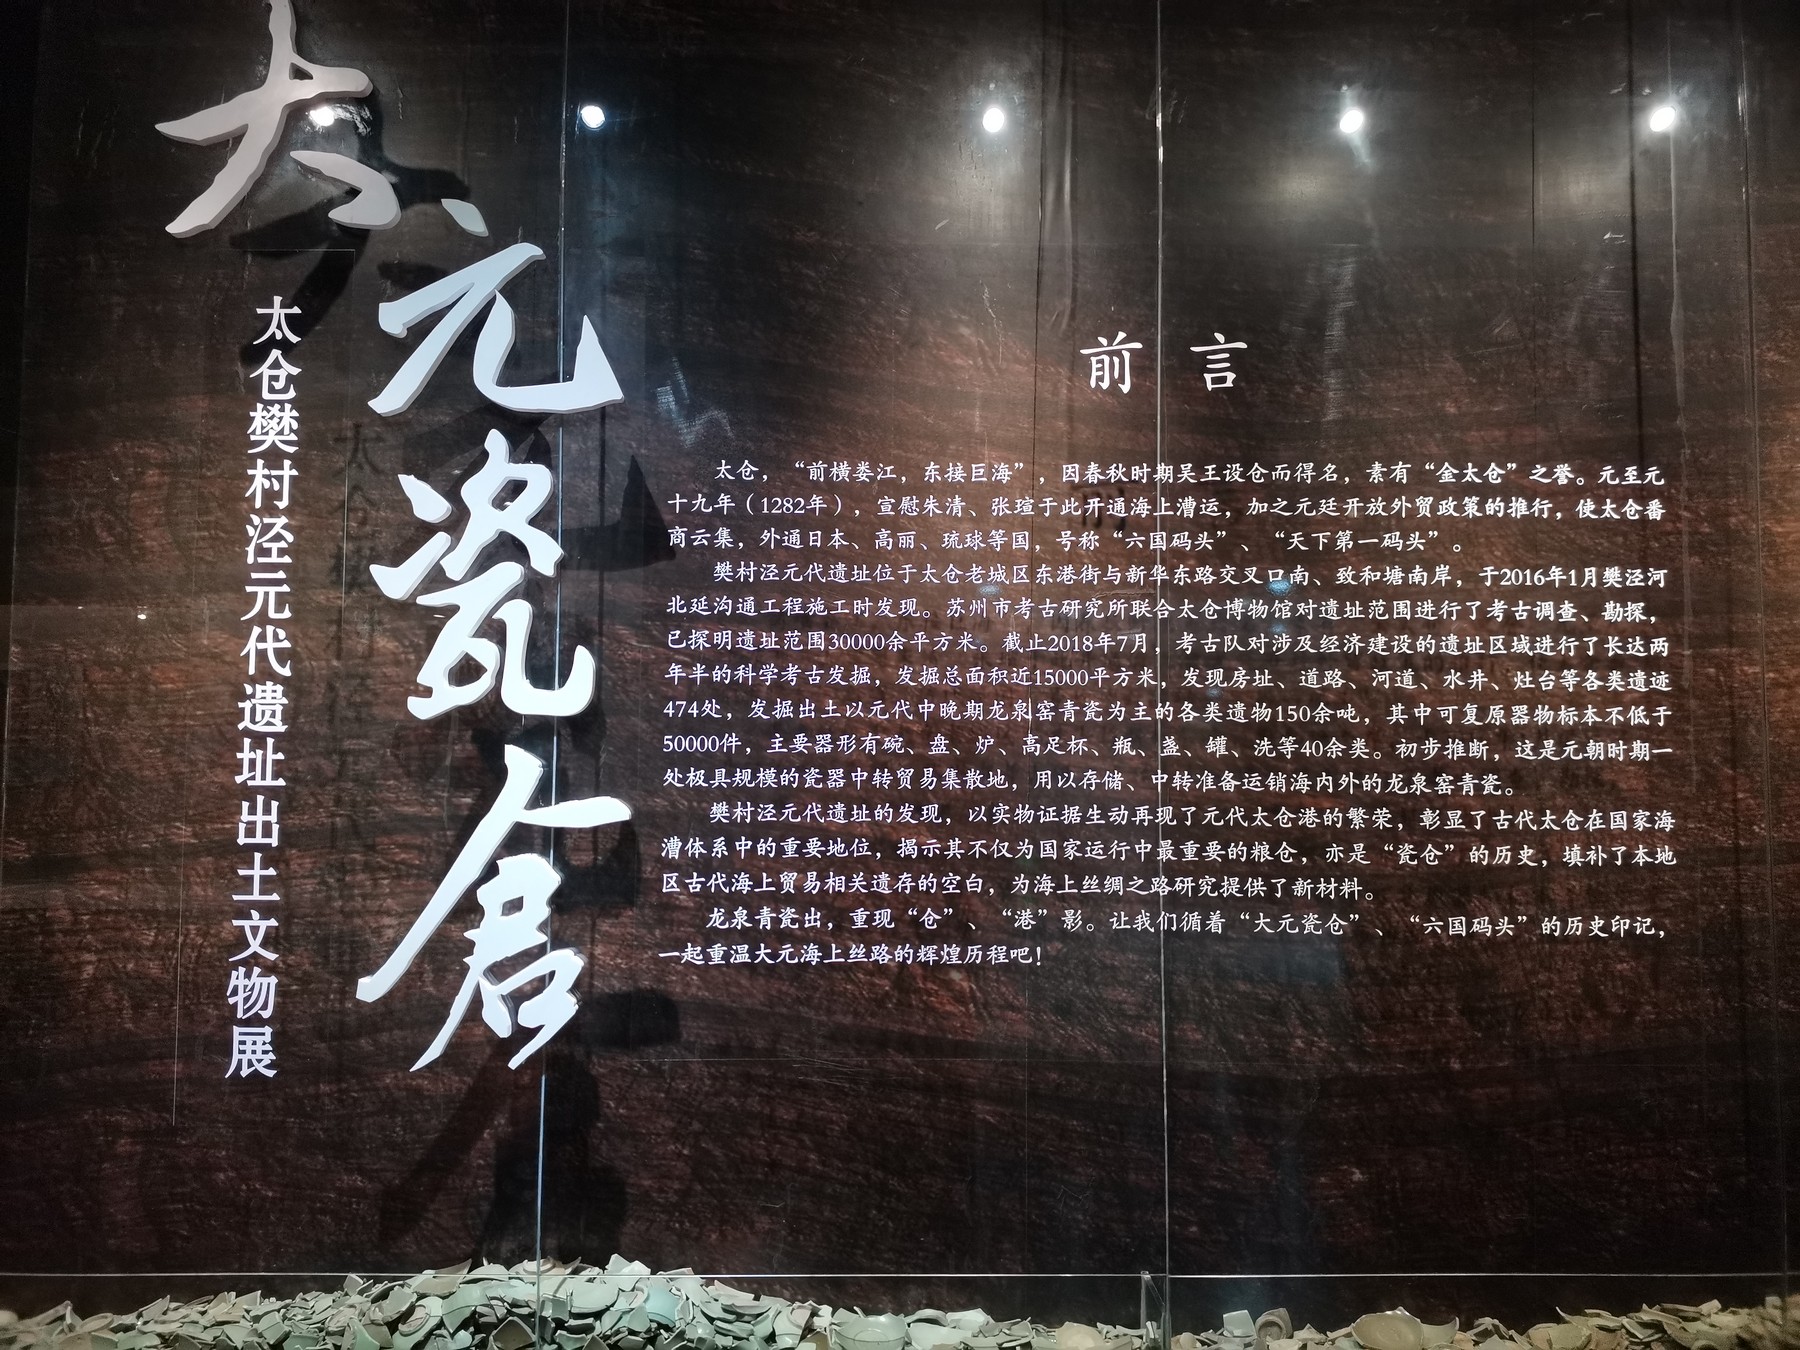 大元瓷仓
太仓樊村泾元代遗址出土文物展
前言
太仓，“前横娄江，东接巨海”，因春秋时期吴王设仓而得名，素有“金太仓”之誉。元至元
十九年（1282年），宣慰朱清、张瑄于此开通海上漕运，加之元廷开放外贸政策的推行，使太仓番
商云集，外通日本、高丽、琉球等国，号称“六国码头”、“天下第一码头”。
樊村泾元代遗址位于太仓老城区东港街与新华东路交叉口南、致和塘南岸，于2016年1月樊泾河
北延沟通工程施工时发现。苏州市考古研究所联合太仓博物馆对遗址范围进行了考古调查、勘探，
已探明遗址范围30000余平方米。截止2018年7月，考古队对涉及经济建设的遗址区域进行了长达两
年半的科学考古发掘，发掘总面积近15000平方米，发现房址、道路、河道、水井、灶台等各类遗迹
474处，发掘出土以元代中晚期龙泉窑青瓷为主的各类遗物150余吨，其中可复原器物标本不低于
50000件，主要器形有碗、盘、炉、高足杯、瓶、盏、罐、洗等40余类。初步推断，这是元朝时期一
处极具规模的瓷器中转贸易集散地，用以存储、中转准备运销海内外的龙泉窑青瓷。
樊村泾元代遗址的发现，以实物证据生动再现了元代太仓港的繁荣，彰显了古代太仓在国家海
漕体系中的重要地位，揭示其不仅为国家运行中最重要的粮仓，亦是“瓷仓”的历史，填补了本地
区古代海上贸易相关遗存的空白，为海上丝绸之路研究提供了新材料。
龙泉青瓷出，重现“仓”、“港”影。让我们循着“大元瓷仓”、“六国码头”的历史印记，
一起重温大元海上丝路的辉煌历程吧！